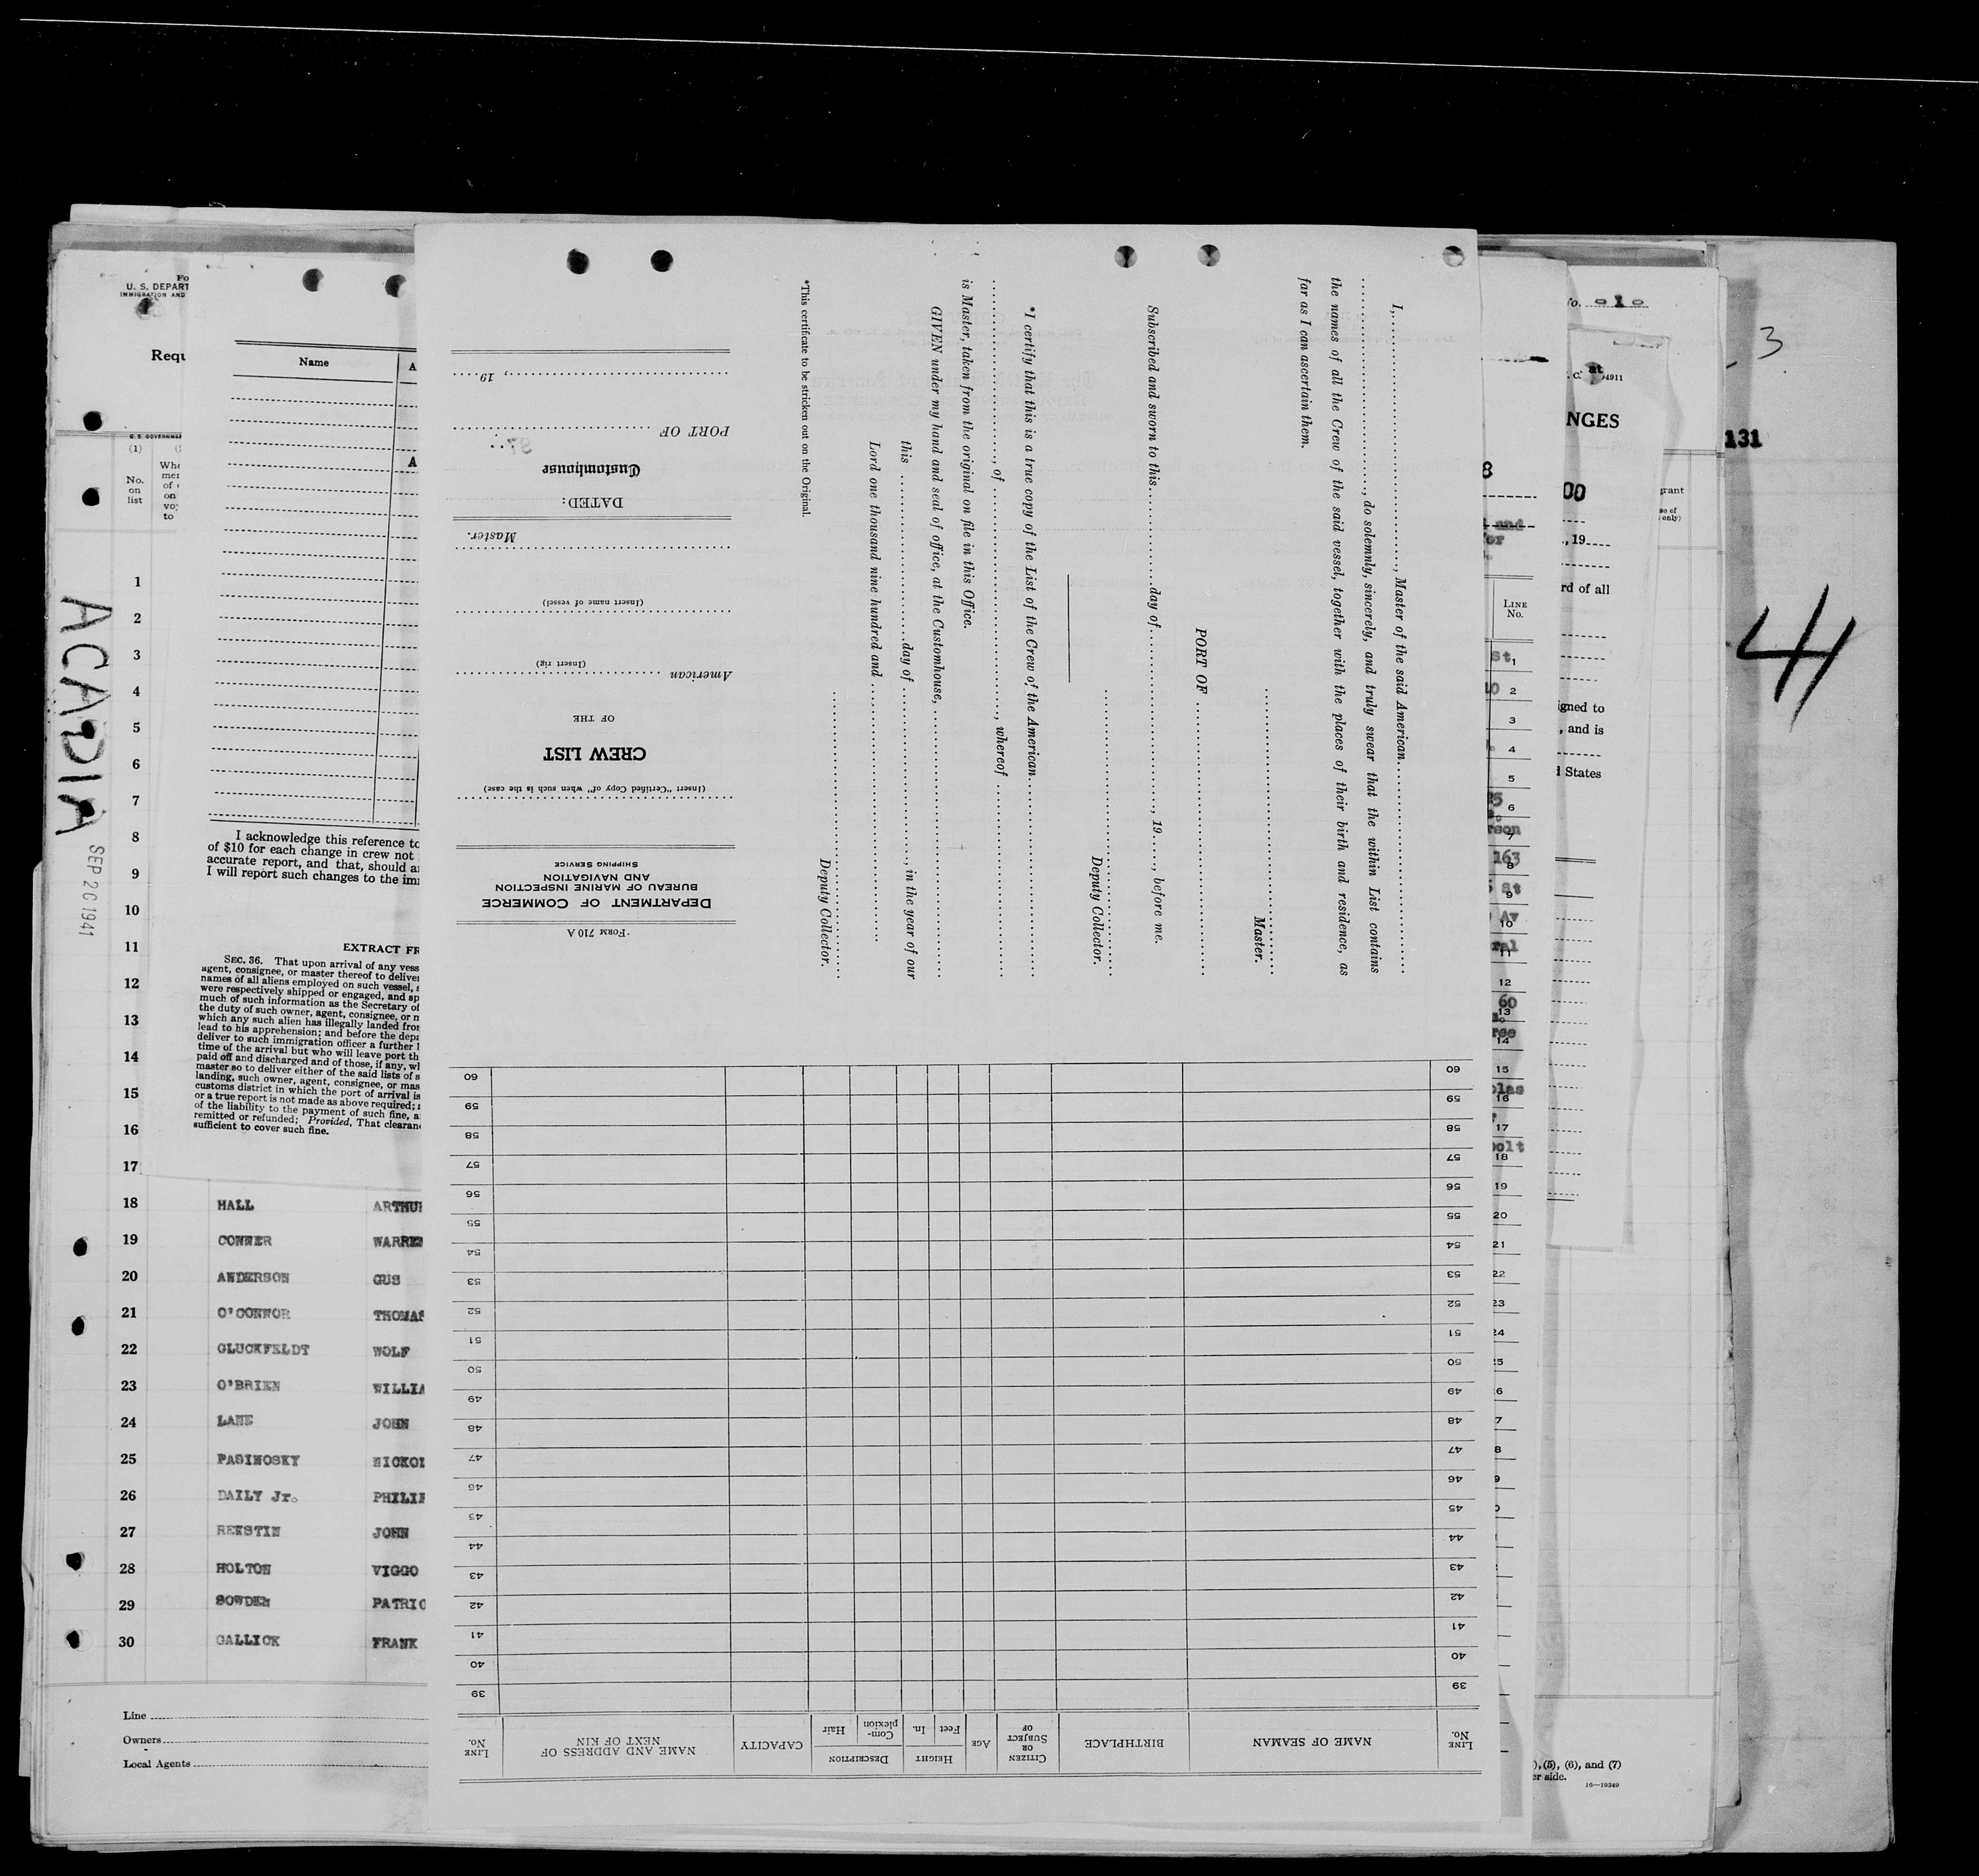 U. S. DEPART
IMMIGRATION AND
Requ
U. S. GOVERNME
(1)
No.
on
list
Whe
mer
of
on
vo
to
Name
A
A
ACADIA
SEP 20 1941
1
2
3
4
5
6
7
8
9
10
11
12
13
14
15
16
17
I acknowledge this reference to
of $10 for each change in crew not
accurate report, and that, should a
I will report such changes to the im
EXTRACT FR
SEC. 36. That upon arrival of any vess
agent, consignee, or master thereof to deliver
names of all aliens employed on such vessel, s
were respectively shipped or engaged, and sp
much of such information as the Secretary of
the duty of such owner, agent, consignee, or m
which any such alien has illegally landed from
lead to his apprehension; and before the depa
deliver to such immigration officer a further l
time of the arrival but who will leave port th
paid off and discharged and of those, if any, wh
master so to deliver either of the said lists of s
landing, such owner, agent, consignee, or mas
customs district in which the port of arrival is
or a true report is not made as above required;
of the liability to the payment of such fine, a
remitted or refunded; Provided, That clearan
sufficient to cover such fine.
18 HALL ARTHUR
19 CONNER WARREN
20 ANDERSON GUS
21 O'CONNOR THOMAS
22 GLUCKFELDT WOLF
23 O'BRIEN WILLIA
24 LANE JOHN
25 PASINOSKY NICKOL
26 DAILY Jr. PHILIP
27 REKSTIN JOHN
28 HOLTON VIGGO
29 SOWDEN PATRIC
30 GALLICK FRANK
Line
Owners
Local Agents
FORM 710 A
DEPARTMENT OF COMMERCE
BUREAU OF MARINE INSPECTION
AND NAVIGATION
SHIPPING SERVICE
(Insert "Certified Copy of" when such is the case)
CREW LIST
OF THE
American
(Insert rig)
(Insert name of vessel)
Master.
DATED:
Customhouse
PORT OF
, 19
I, , Master of the said American
, do solemnly, sincerely, and truly swear that the within List contains
the names of all the Crew of the said vessel, together with the places of their birth and residence, as
far as I can ascertain them.
Master.
PORT OF
Subscribed and sworn to this day of , 19 , before me.
Deputy Collector.
*I certify that this is a true copy of the List of the Crew of the American
, of , whereof
is Master, taken from the original on file in this Office.
GIVEN under my hand and seal of office, at the Customhouse,
this day of , in the year of our
Lord one thousand nine hundred and
Deputy Collector.
*This certificate to be stricken out on the Original.
LINE No.
NAME OF SEAMAN
BIRTHPLACE
CITIZEN OR SUBJECT OF
AGE
HEIGHT
Feet
In.
DESCRIPTION
Complexion
Hair
CAPACITY
NAME AND ADDRESS OF NEXT OF KIN
LINE No.
39 39
40 40
41 41
42 42
43 43
44 44
45 45
46 46
47 47
48 48
49 49
50 50
51 51
52 52
53 53
54 54
55 55
56 56
57 57
58 58
59 59
60 60
8
and
for
LINE
No.
St 1
10 2
3
4
5
25 6
rson
7
163
8
St
9
Av
10
ral
11
12
60
13
ree
14
15
olas
16
17
bolt
18
19
20
21
22
23
24
No. 1
at
4911
NGES
00
, 19
rd of all
igned to
, and is
d States
grant
se of
only)
131
3
44
), (5), (6), and (7)
er side.
16—19349